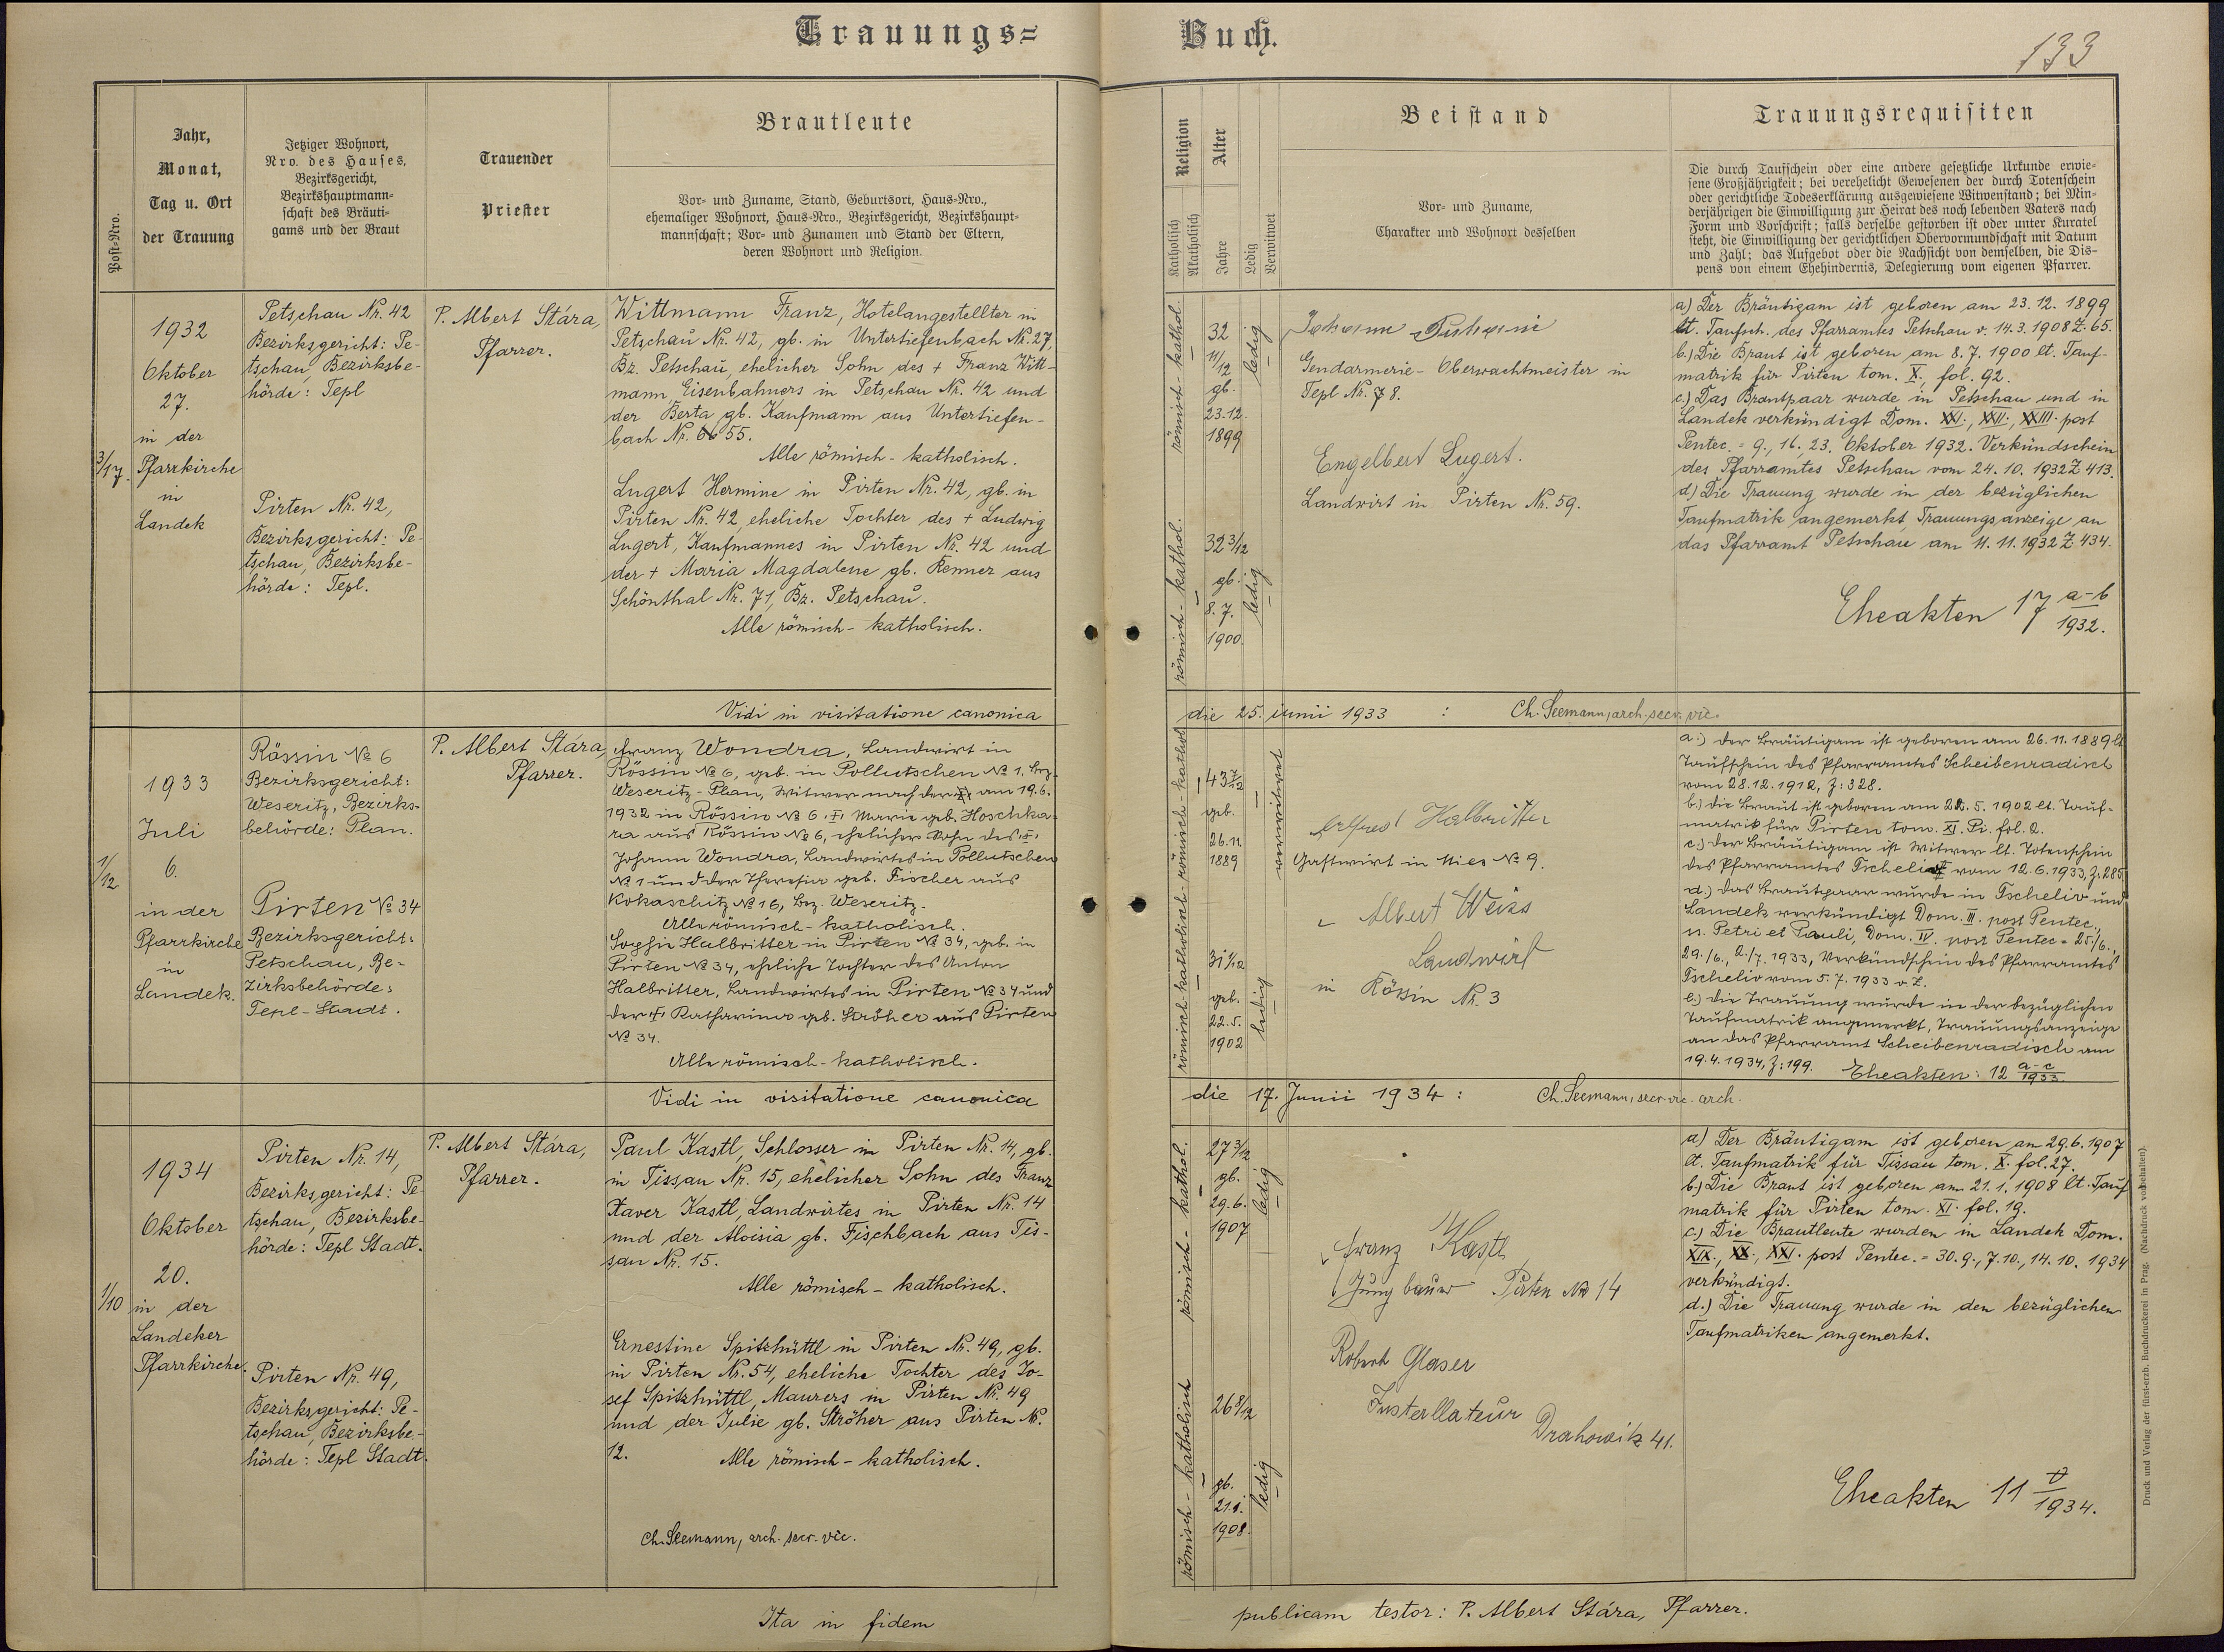 Trauungs=
Buch.
133
Post=Nro.
Jahr,
Monat,
Tag u. Ort
der Trauung
Jetziger Wohnort,
Nro. des Hauses,
Bezirksgericht,
Bezirkshauptmann=
schaft des Bräuti=
gams und der Braut
Trauender
Priester
Brautleute
Vor= und Zuname, Stand, Geburtsort, Haus=Nro.,
ehemaliger Wohnort, Haus=Nro., Bezirksgericht, Bezirkshaupt=
mannschaft; Vor= und Zunamen und Stand der Eltern,
deren Wohnort und Religion.
Religion
Katholisch
Akatholisch
Alter
Jahre
Ledig
Verwitwet
Beistand
Vor= und Zuname,
Charakter und Wohnort desselben
Trauungsrequisiten
Die durch Taufschein oder eine andere gesetzliche Urkunde erwie=
sene Großjährigkeit; bei verehelicht Gewesenen der durch Totenschein
oder gerichtliche Todeserklärung ausgewiesene Witwenstand; bei Min=
derjährigen die Einwilligung zur Heirat des noch lebenden Vaters nach
Form und Vorschrift; falls derselbe gestorben ist oder unter Kuratel
steht, die Einwilligung der gerichtlichen Obervormundschaft mit Datum
und Zahl; das Aufgebot oder die Nachsicht von demselben, die Dis=
pens von einem Ehehindernis, Delegierung vom eigenen Pfarrer.
3/17.
1932
Oktober
27.
in der
Pfarrkirche
in
Landek
Petschau Nr. 42
Bezirksgericht: Pe-
tschau, Bezirksbe-
hörde: Tepl
Pirten Nr. 42,
Bezirksgericht: Pe-
tschau, Bezirksbe-
hörde: Tepl.
P. Albert Stára,
Pfarrer.
Wittmann Franz, Hotelangestellter in
Petschau Nr. 42, gb. in Untertiefenbach Nr. 27,
Bz. Petschau, ehelicher Sohn des + Franz Witt-
mann, Eisenbahners in Petschau Nr. 42 und
der Berta gb. Kaufmann aus Untertiefen-
bach Nr. 55.
Alle römisch - katholisch.
Lugert Hermine in Pirten Nr. 42, gb. in
Pirten Nr. 42, eheliche Tochter des + Ludwig
Lugert, Kaufmannes in Pirten Nr. 42 und
der + Maria Magdalene gb. Renner aus
Schönthal Nr. 71, Bz. Petschau.
Alle römisch - katholisch.
römisch - kathol.
32
11/12
gb.
23.12.
1899
ledig
römisch - kathol.
32 3/12
gb.
8. 7.
1900.
ledig
Gendarmerie - Oberwachtmeister in
Tepl Nr. 8.
Engelbert Lugert.
Landwirt in Pirten Nr. 59.
a) Der Bräutigam ist geboren am 23. 12. 1899
lt. Taufsch. des Pfarramtes Petschau v. 14. 3. 1908 Z. 65.
b.) Die Braut ist geboren am 8. 7. 1900 lt. Tauf-
matrik für Pirten tom. X., fol. 92.
c.) Das Brautpaar wurde in Petschau und in
Landek verkündigt Dom. XXI., XXII., XXIII. post
Pentec. = 9., 16., 23. Oktober 1932. Verkündschein
des Pfarramtes Petschau vom 24. 10. 1932 Z 413.
d) Die Trauung wurde in der bezüglichen
Taufmatrik angemerkt Trauungsanzeige an
das Pfarramt Petschau am 11. 11. 1932 Z. 434.
Eheakten 17 a-b/1932.
Vidi in visitatione canonica
die 25. iunii 1933 : Ch. Seemann, arch. secr. vic.
1/12
1933
Juli
6.
in der
Pfarrkirche
in
Landek.
Rössin № 6
Bezirksgericht:
Weseritz, Bezirks-
behörde: Plan.
Pirten № 34
Bezirksgericht:
Petschau, Be-
zirksbehörde:
Tepl-Stadt.
P. Albert Stára,
Pfarrer.
Franz Wondra, Landwirt in
Rössin № 6, geb. in Pollutschen № 1, Bez.
Weseritz-Plan, Witwer nach der am 19. 6.
1932 in Rössin № 6 + Marie geb. Hoschka-
ra aus Rössin № 6, ehelicher Sohn des +
Johann Wondra, Landwirtes in Pollutschen
№ 1 und der Theresia geb. Fischer aus
Kokaschitz № 16, Bz. Weseritz.
Alle römisch - katholisch.
Sophie Halbritter in Pirten № 34, geb. in
Pirten № 34, eheliche Tochter des Anton
Halbritter, Landwirtes in Pirten № 34 und
der + Katharina geb. Ströher aus Pirten
№ 34.
Alle römisch - katholisch.
römisch - kathol.
43 7/12
geb.
26. 11
1889
verwitwet
römisch - katholisch
31 1/12
geb.
22. 5.
1902
ledig
Alfred Halbritter
Gastwirt in Mies № 9.
Albert Weiss
Landwirt
in Rössin Nr. 3
a.) Der Bräutigam ist geboren am 26. 11. 1889 lt.
Taufschein des Pfarramtes Scheibenradisch
vom 28. 12. 1912, Z: 328.
b.) Die Braut ist geboren am 22. 5. 1902 lt. Tauf-
matrik für Pirten tom. XI. Pi. fol. 2.
c.) Der Bräutigam ist Witwer lt. Totenschein
des Pfarramtes Tscheliv vom 12. 6. 1933, Z: 285
d.) Das Brautpaar wurde in Tscheliv und
Landek verkündigt Dom. III. post Pentec.,
n. Petri et Pauli, Dom. IV. post Pentec = 25./6.,
29./6., 2./7. 1933, Verkündschein des Pfarramtes
Tscheliv vom 5. 7. 1933 o. Z.
e.) Die Trauung wurde in der bezüglichen
Taufmatrik angemerkt, Trauungsanzeige
an das Pfarramt Scheibenradisch am
19. 4. 1934, Z: 199. Eheakten: 12 a-c/1933.
Vidi in visitatione canonica
die 17. Junii 1934 : Ch. Seemann, secr. vic. arch.
1/10
1934
Oktober
20.
in der
Landeker
Pfarrkirche.
Pirten Nr. 14,
Bezirksgericht: Pe-
tschau, Bezirksbe-
hörde: Tepl Stadt.
Pirten Nr. 49,
Bezirksgericht: Pe-
tschau, Bezirksbe-
hörde: Tepl Stadt.
P. Albert Stára,
Pfarrer.
Paul Kastl, Schlosser in Pirten Nr. 14, gb.
in Tissau Nr. 15, ehelicher Sohn des Franz
Xaver Kastl, Landwirtes in Pirten Nr. 14
und der Aloisia gb. Fischbach aus Tis-
sau Nr. 15.
Alle römisch - katholisch.
Ernestine Spitzhüttl in Pirten Nr. 49, gb.
in Pirten Nr. 54, eheliche Tochter des Jo-
sef Spitzhüttl, Maurers in Pirten Nr. 49
und der Julie gb. Ströher aus Pirten Nr.
12. Alle römisch - katholisch.
Ch. Seemann, arch. secr. vic.
römisch - kathol.
27 3/12
gb.
29. 6.
1907
ledig
römisch - katholisch
26 8/12
gb.
21. 1.
1908.
ledig
Franz Kastl
Jungbauer Pirten № 14
Robert Glaser
Installateur
Drahowitz 41.
a) Der Bräutigam ist geboren am 29. 6. 1907
lt. Taufmatrik für Tissau tom. X. fol. 27.
b.) Die Braut ist geboren am 21. 1. 1908 lt. Tauf
matrik für Pirten tom. XI. fol. 19.
c) Die Brautleute wurden in Landek Dom.
XIX., XX., XXI. post Pentec. = 30. 9., 7. 10., 14. 10. 1934
verkündigt.
d.) Die Trauung wurde in den bezüglichen
Taufmatriken angemerkt.
Eheakten 11 /1934.
Druck und Verlag der fürst-erzb. Buchdruckerei in Prag. (Nachdruck vorbehalten).
Ita in fidem
publicam testor: P. Albert Stára, Pfarrer.